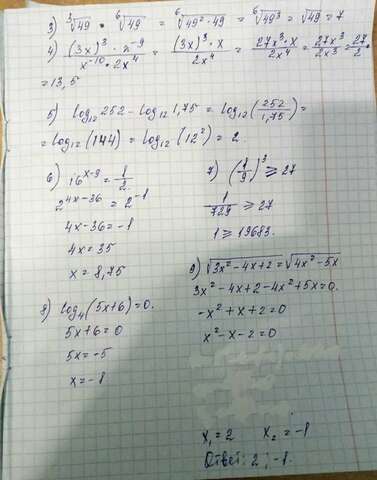 3) ∛49 · ⁶√49 = ⁶√(49² · 49) = ⁶√49³ = √49 = 7
4) (3x)³ · x⁻⁹ / x⁻¹⁰ · 2x⁴ = (3x)³ · x / 2x⁴ = 27x³ · x / 2x⁴ = 27x³ / 2x³ = 27/2 =
= 13,5
5) log₁₂ 252 − log₁₂ 1,75 = log₁₂ (252 / 1,75) =
= log₁₂ (144) = log₁₂ (12²) = 2
6) 16ˣ⁻⁹ = 1/2
2⁴ˣ⁻³⁶ = 2⁻¹
4x − 36 = −1
4x = 35
x = 8,75
7) (1/9)³ ⩾ 27
1/729 ⩾ 27
1 ⩾ 19683.
8) log₄ (5x+6) = 0.
5x+6 = 0
5x = −5
x = −1
9) √(3x² − 4x + 2) = √(4x² − 5x)
3x² − 4x + 2 − 4x² + 5x = 0.
−x² + x + 2 = 0
x² − x − 2 = 0
x₁ = 2 x₂ = −1
Ответ: 2 ; −1.